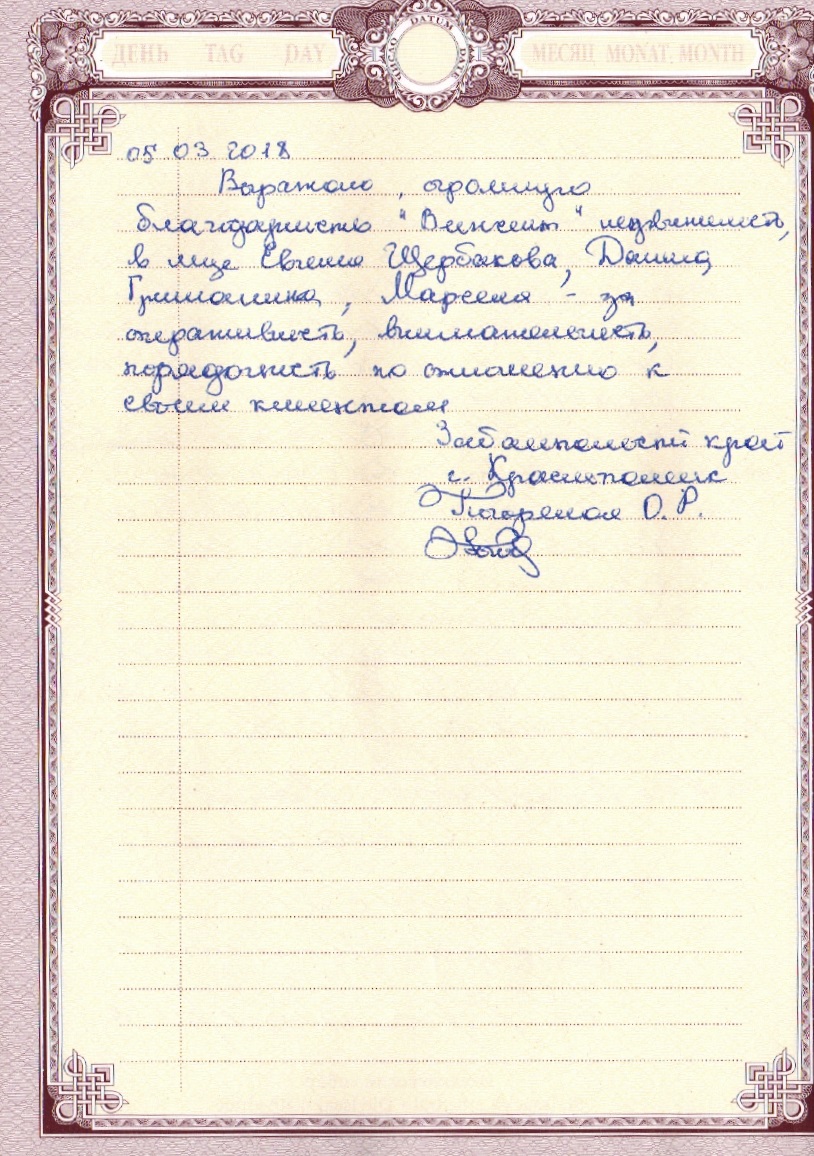 ДЕНЬ TAG DAY DATUM DATE МЕСЯЦ MONAT, MONTH
05 03 2018
Выражаю, огромную
благодарность "Винсент" недвижимость,
в лице Евгения Щербакова, Данила
Марселя - за
оперативность, внимательность,
порядочность по отношению к
своим клиентам
Забайкальский край
г. Краснокаменск
О. Р.